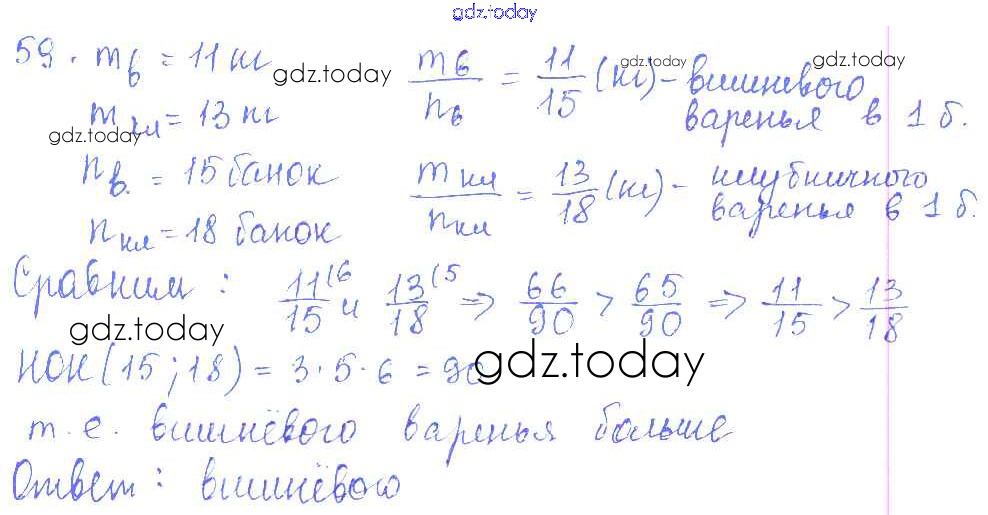 gdz.today
59. mв = 11 кг
mв/nв = 11/15 (кг) - вишневого варенья в 1 б.
gdz.today
gdz.today
mкл = 13 кг
gdz.today
nв. = 15 банок
mкл/nкл = 13/18 (кг) - клубничного варенья в 1 б.
nкл = 18 банок
Сравним: 11/15 (6 и 13/18 (5 => 66/90 > 65/90 => 11/15 > 13/18
gdz.today
НОК (15; 18) = 3·5·6 = 90
gdz.today
т.е. вишнёвого варенья больше
Ответ: вишнёвого